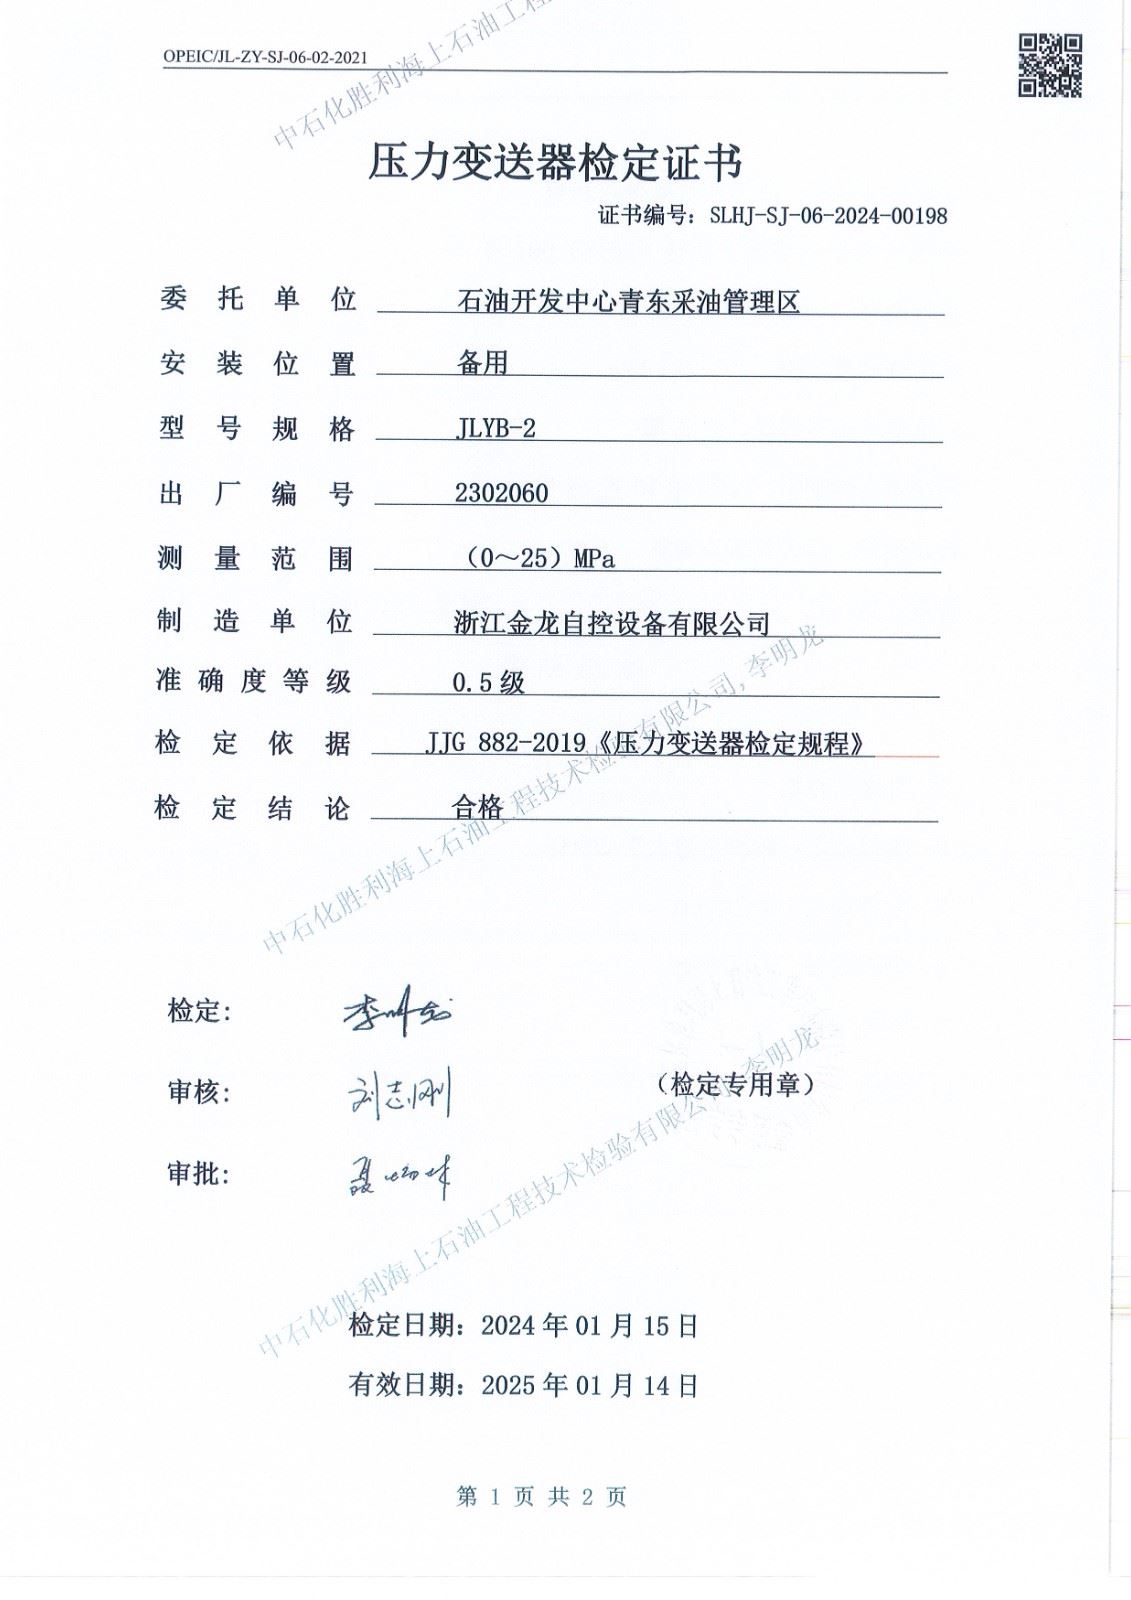 OPEIC/JL-ZY-SJ-06-02-2021
中石化胜利海上石油工程
压力变送器检定证书
证书编号：SLHJ-SJ-06-2024-00198
委托单位 石油开发中心青东采油管理区
安装位置 备用
型号规格 JLYB-2
出厂编号 2302060
测量范围 （0～25）MPa
制造单位 浙江金龙自控设备有限公司
准确度等级 0.5级
检定依据 JJG 882-2019《压力变送器检定规程》
检定结论 合格
中石化胜利海上石油工程技术检验有限公司,李明龙
检定： 李明龙
审核： 刘志刚
（检定专用章）
审批：
中石化胜利海上石油工程技术检验有限公司,李明龙
检定日期：2024年01月15日
有效日期：2025年01月14日
第 1 页 共 2 页